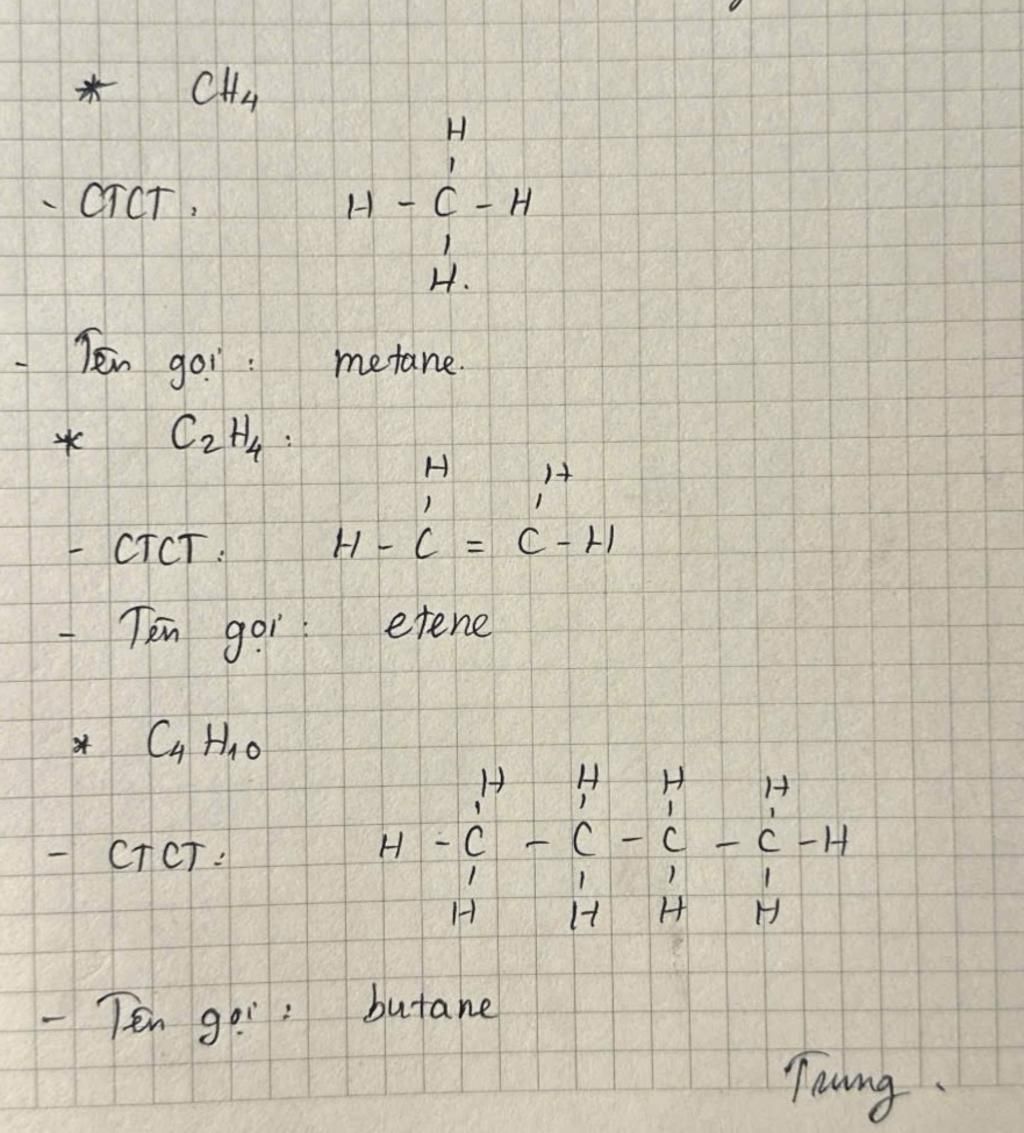 * CH₄
H
- CTCT: H - C - H
H.
- Tên gọi: metane.
* C₂H₄:
H H
- CTCT: H - C = C - H
- Tên gọi: etene
* C₄H₁₀
H H H H
- CTCT: H - C - C - C - C - H
H H H H
- Tên gọi: butane
Trung.